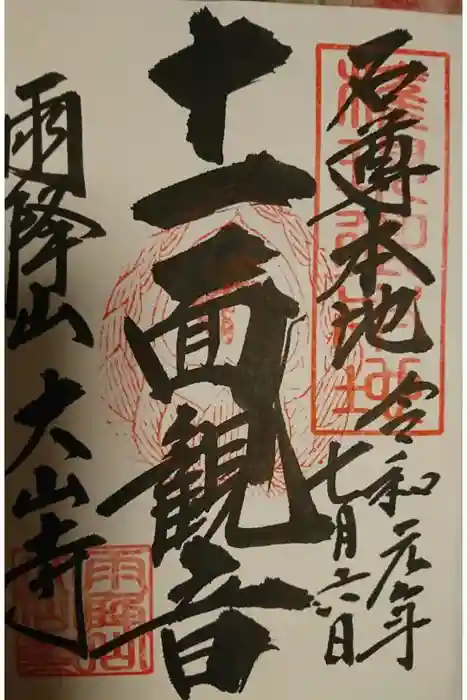 石尊本地
令和元年
七月六日
十一面観音
雨降山 大山寺
雨降山